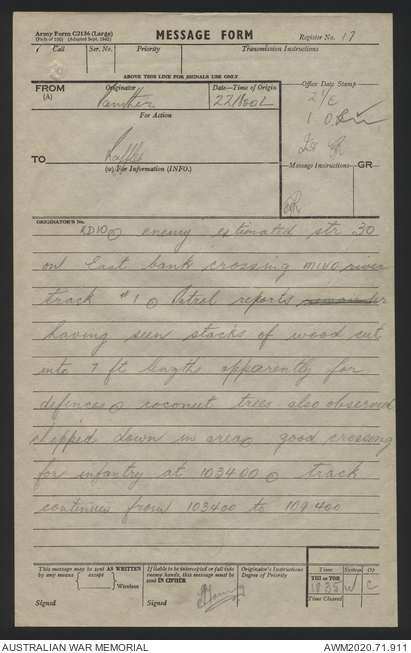 Army Form C2136 (Large)
(Pads of 100) (Adapted Sept. 1942)
MESSAGE FORM
Register No. 17
Call
Ser. No.
Priority
Transmission Instructions
ABOVE THIS LINE FOR SIGNALS USE ONLY
FROM
(A)
Originator
Panther
Date—Time of Origin
221800L
Office Date Stamp
For Action
TO
Raffles
(W) For Information (INFO.)
Message Instructions
GR
ORIGINATOR'S No.
RD10 enemy estimated str 30
on East bank crossing MIVO river
track #1 Patrol reports
having seen stacks of wood cut
into 7 ft lengths apparently for
defences coconut trees also observed
chopped down in area good crossing
for infantry at 103400 track
continues from 103400 to 109400
This message may be sent AS WRITTEN
by any means except
Wireless
Signed
If liable to be intercepted or fall into
enemy hands, this message must be
sent IN CIPHER
Signed
Originator's Instructions
Degree of Priority
Time
System
Op
THI or TOR
1835
C
Time Cleared
AUSTRALIAN WAR MEMORIAL
AWM2020.71.911